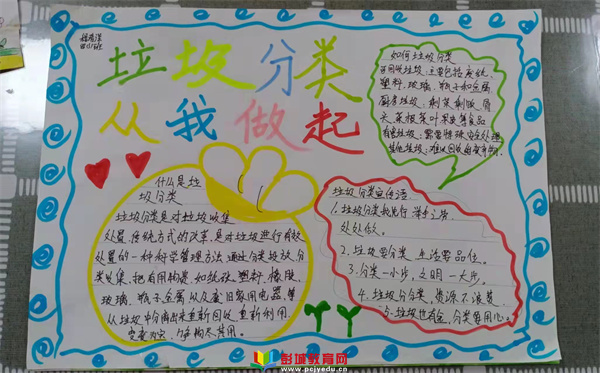 垃圾分类
从我做起
如何垃圾分类
可回收垃圾：主要包括废纸，
塑料，玻璃，瓶子和金属
厨房垃圾：剩菜剩饭，骨
头，菜根菜叶果皮等食品
有害垃圾：需要特殊安全处理
其他垃圾：难以回收的废弃物
什么是垃
圾分类
垃圾分类是对垃圾收集
处置传统方式的改革，是对垃圾进行有效
处置的一种科学管理方法，通过分类投放，分
类收集，把有用物资，如纸张，塑料，橡胶，
玻璃，瓶子金属以及废旧家用电器等
从垃圾中分离出来重新回收，重新利用，
变废为宝，物尽其用。
垃圾分类宣传语
1.垃圾分类我先行
处处做。
2.垃圾要分类，生活要品位。
3.分类一小步，文明一大步。
4.垃圾分分类，资源不浪费
5.垃圾也有家，分类要用心
彭城教育网
www.pcjyedu.cn